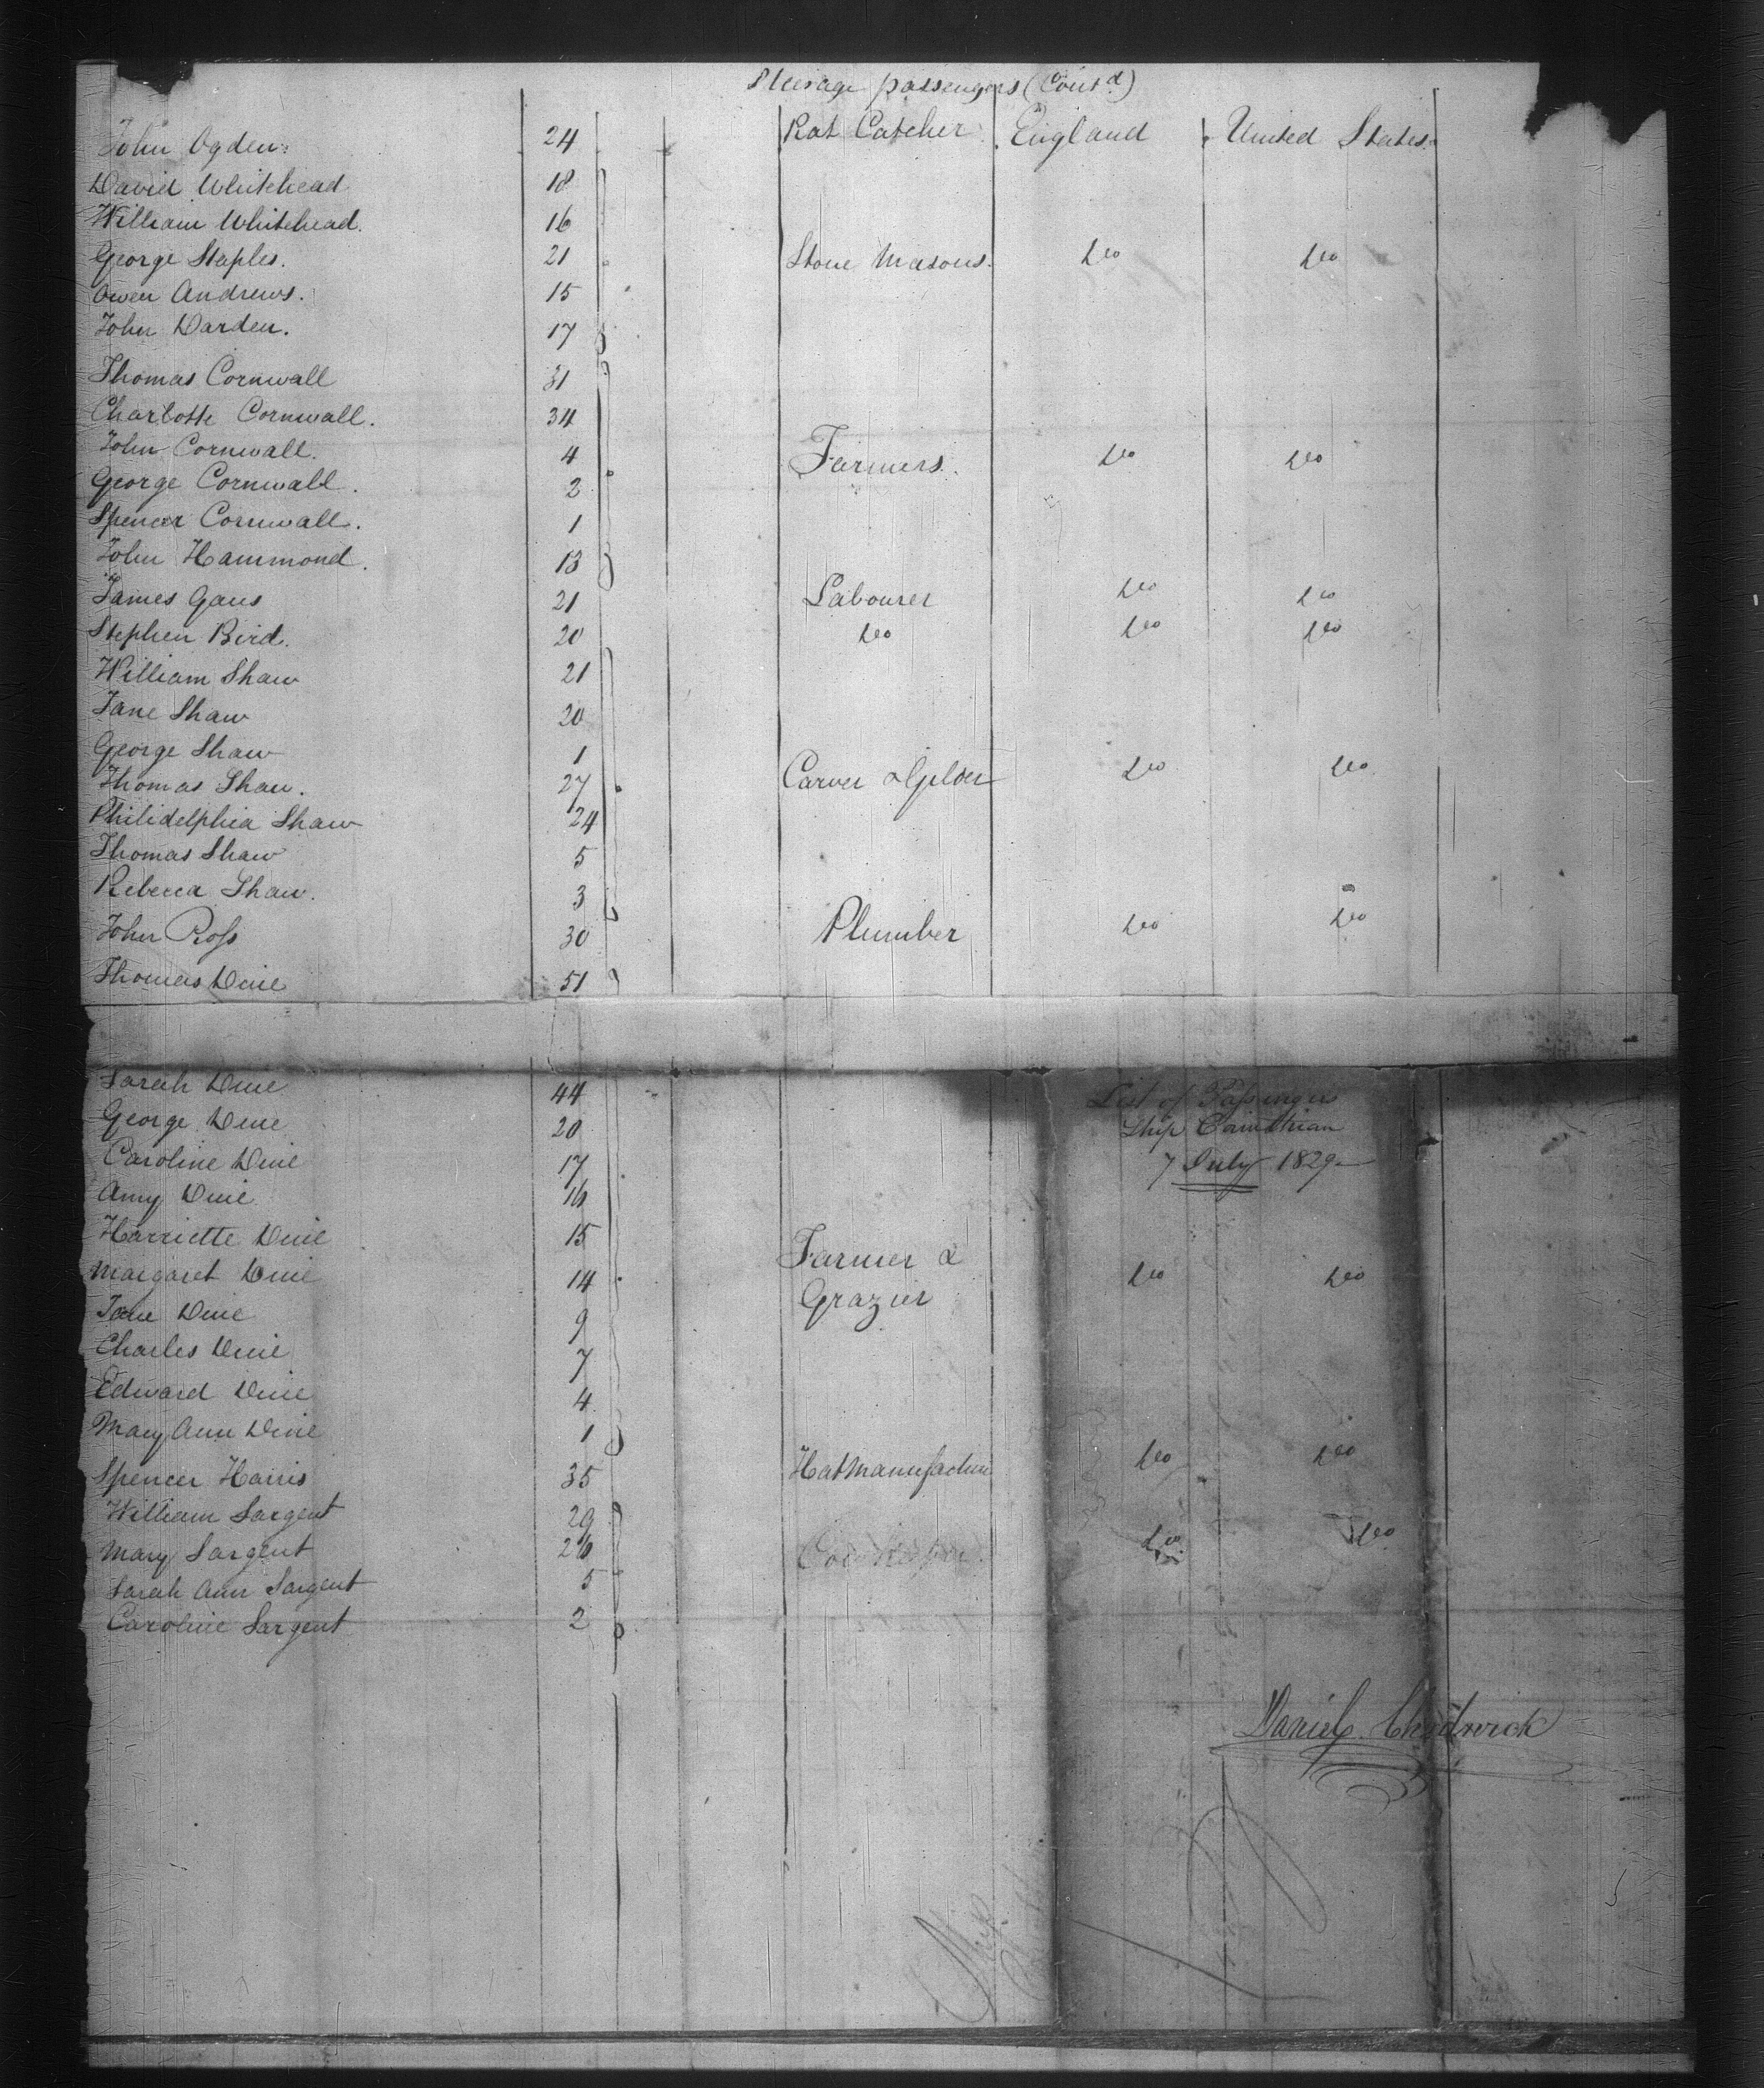 Steerage passengers (Cont.d)
John Ogden. 24 Rat Catcher England United States.
David Whitehead 18
William Whitehead. 16
George Staples. 21 Stone Masons. Do Do
Owen Andrews. 15
John Darden. 17
Thomas Cornwall 31
Charlotte Cornwall. 34
John Cornwall. 4 Farmers. Do Do
George Cornwall. 2
Spencer Cornwall. 1
John Hammond. 13
James Gaus 21 Labourer Do Do
Stephen Bird. 20 Do Do Do
William Shaw 21
Jane Shaw 20
George Shaw 1
Thomas Shaw. 27 Carver & Gilder Do Do
Philidelphia Shaw 24
Thomas Shaw 5
Rebecca Shaw. 3
John Ross 30 Plumber Do Do
Thomas Dine 51
Sarah Dine 44
George Dine 20
Caroline Dine 17
Amy Dine 16
Harriette Dine 15
Margaret Dine 14 Farmer & Grazier Do Do
Jane Dine 9
Charles Dine 7
Edward Dine 4
Mary Ann Dine 1
Spencer Harris 35 Hat Manufacture Do Do
William Sargent 29
Mary Sargent 26 Do Do
Sarah Ann Sargent 5
Caroline Sargent 2
List of Passengers
Ship Corinthian
7 July 1829
Daniel Chadwick
Ship